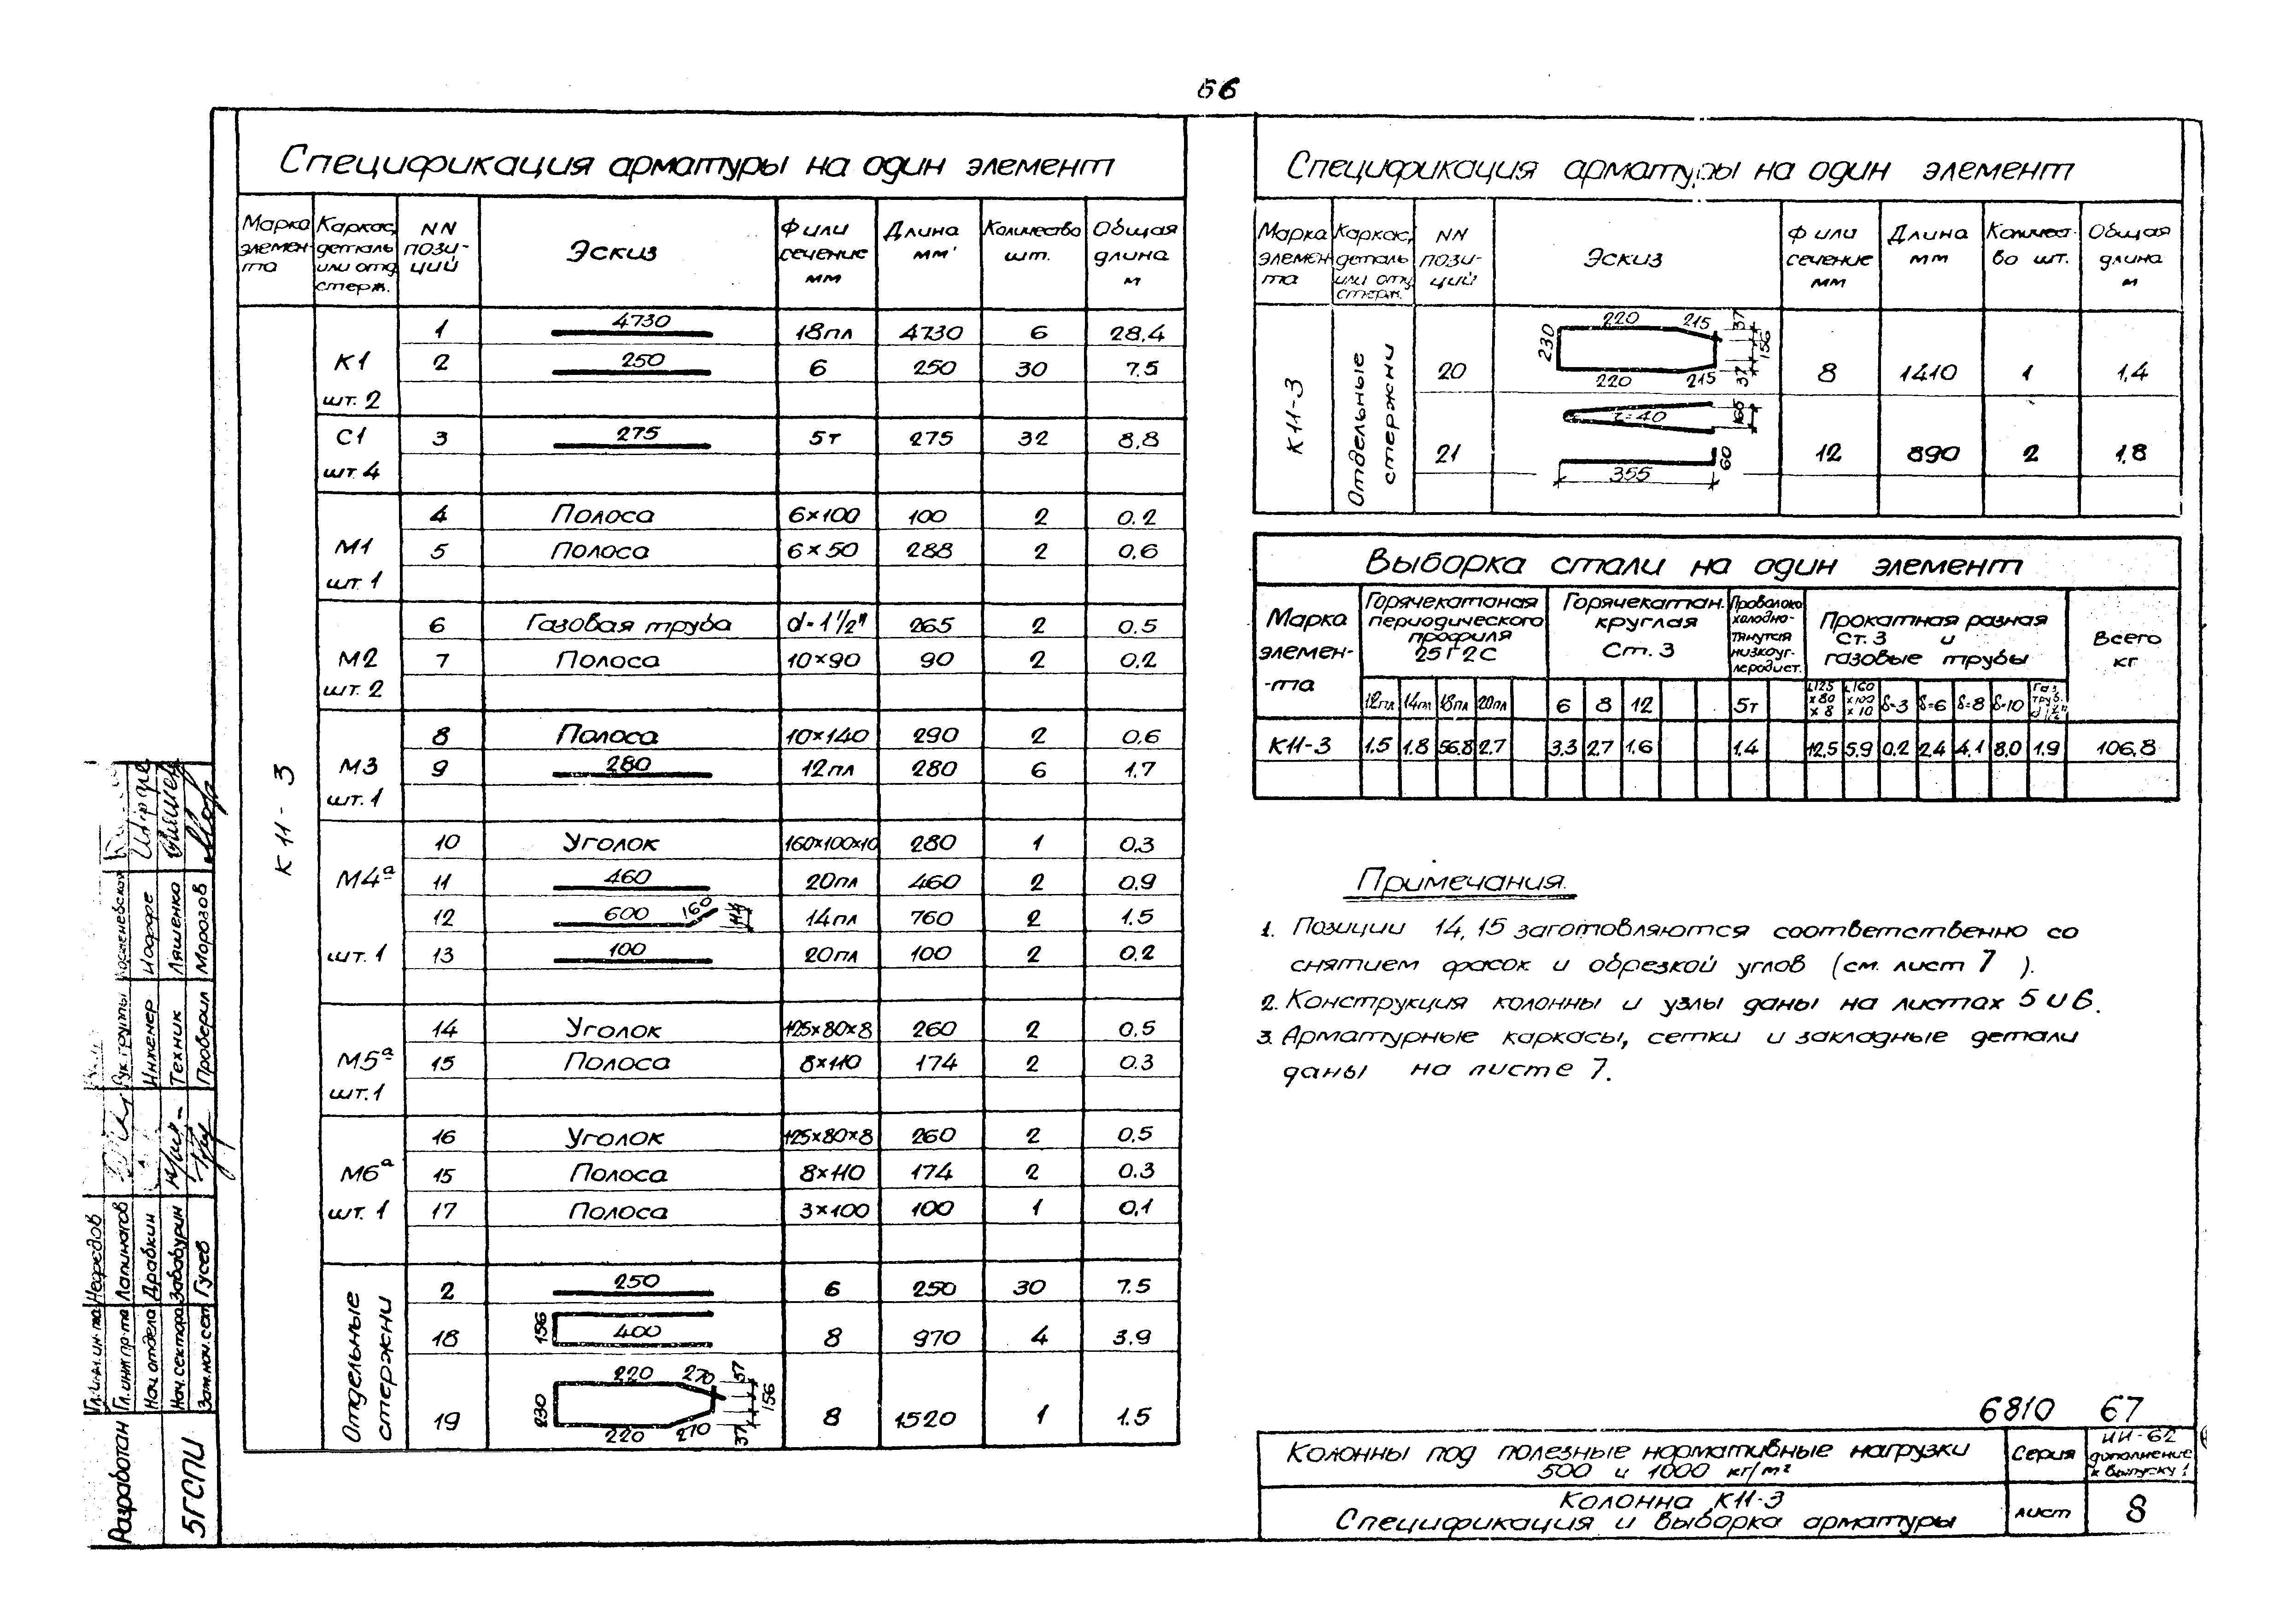 66
Спецификация арматуры на один элемент
Марка элемен-та
Каркас, деталь или отд. стерж.
NN пози-ций
Эскиз
Ф или сечение мм
Длина мм
Количество шт.
Общая длина м
К11-3
К1 шт. 2
1 4730 18пл 4730 6 28.4
2 250 6 250 30 7.5
С1 шт. 4
3 275 5т 275 32 8,8
М1 шт. 1
4 Полоса 6×100 100 2 0.2
5 Полоса 6×50 288 2 0,6
М2 шт. 2
6 Газовая труба d=1 1/2" 265 2 0.5
7 Полоса 10×90 90 2 0.2
М3 шт. 1
8 Полоса 10×140 290 2 0.6
9 280 12пл 280 6 1.7
М4а шт. 1
10 Уголок 160×100×10 280 1 0.3
11 460 20пл 460 2 0.9
12 600 160 14пл 760 2 1.5
13 100 20пл 100 2 0.2
М5а шт. 1
14 Уголок 125×80×8 260 2 0.5
15 Полоса 8×110 174 2 0.3
М6а шт. 1
16 Уголок 125×80×8 260 2 0.5
15 Полоса 8×110 174 2 0.3
17 Полоса 3×100 100 1 0,1
Отдельные стержни
2 250 6 250 30 7.5
18 156 400 8 970 4 3.9
19 230 220 270 57 156 220 270 37 8 1520 1 1.5
Спецификация арматуры на один элемент
Марка элемен-та
Каркас, деталь или отд. стерж.
NN пози-ций
Эскиз
Ф или сечение мм
Длина мм
Количест-во шт.
Общая длина м
К11-3
Отдельные стержни
20 230 220 215 37 156 220 215 37 8 1410 1 1,4
21 355 60 12 890 2 1,8
Выборка стали на один элемент
Марка элемен-та
Горячекатаная периодического профиля 25Г2С
Горячекатан. круглая Ст. 3
Проволока холодно-тянутая низкоуг-леродист.
Прокатная разная Ст. 3 и газовые трубы
Всего кг
12пл 14пл 18пл 20пл 6 8 12 5т L125×80×8 L160×100×10 δ=3 δ=6 δ=8 δ=10
К11-3 1.5 1.8 56.8 2.7 3.3 2.7 1.6 1.4 12,5 5.9 0.2 2.4 4.1 8,0 1.9 106,8
Примечания.
1. Позиции 14, 15 заготовляются соответственно со
снятием фасок и обрезкой углов (см. лист 7 ).
2. Конструкция колонны и узлы даны на листах 5 и 6.
3. Арматурные каркасы, сетки и закладные детали
даны на листе 7.
6810 67
Колонны под полезные нормативные нагрузки
500 и 1000 кг/м²
Серия
ИИ-62 дополнение к выпуску 1
Колонна К11-3
Спецификация и выборка арматуры
лист
8
Гл. инж. ин-та Нефедов
Гл. инж. пр-та Лапинагов
Нач. отдела Драбкин
Нач. сектора Забабурин
Зам. нач. сект. Гусев
Рук. группы
Инженер Иоффе
Техник Ляшенко
Проверил Морозов
Разработан
5ГСПИ